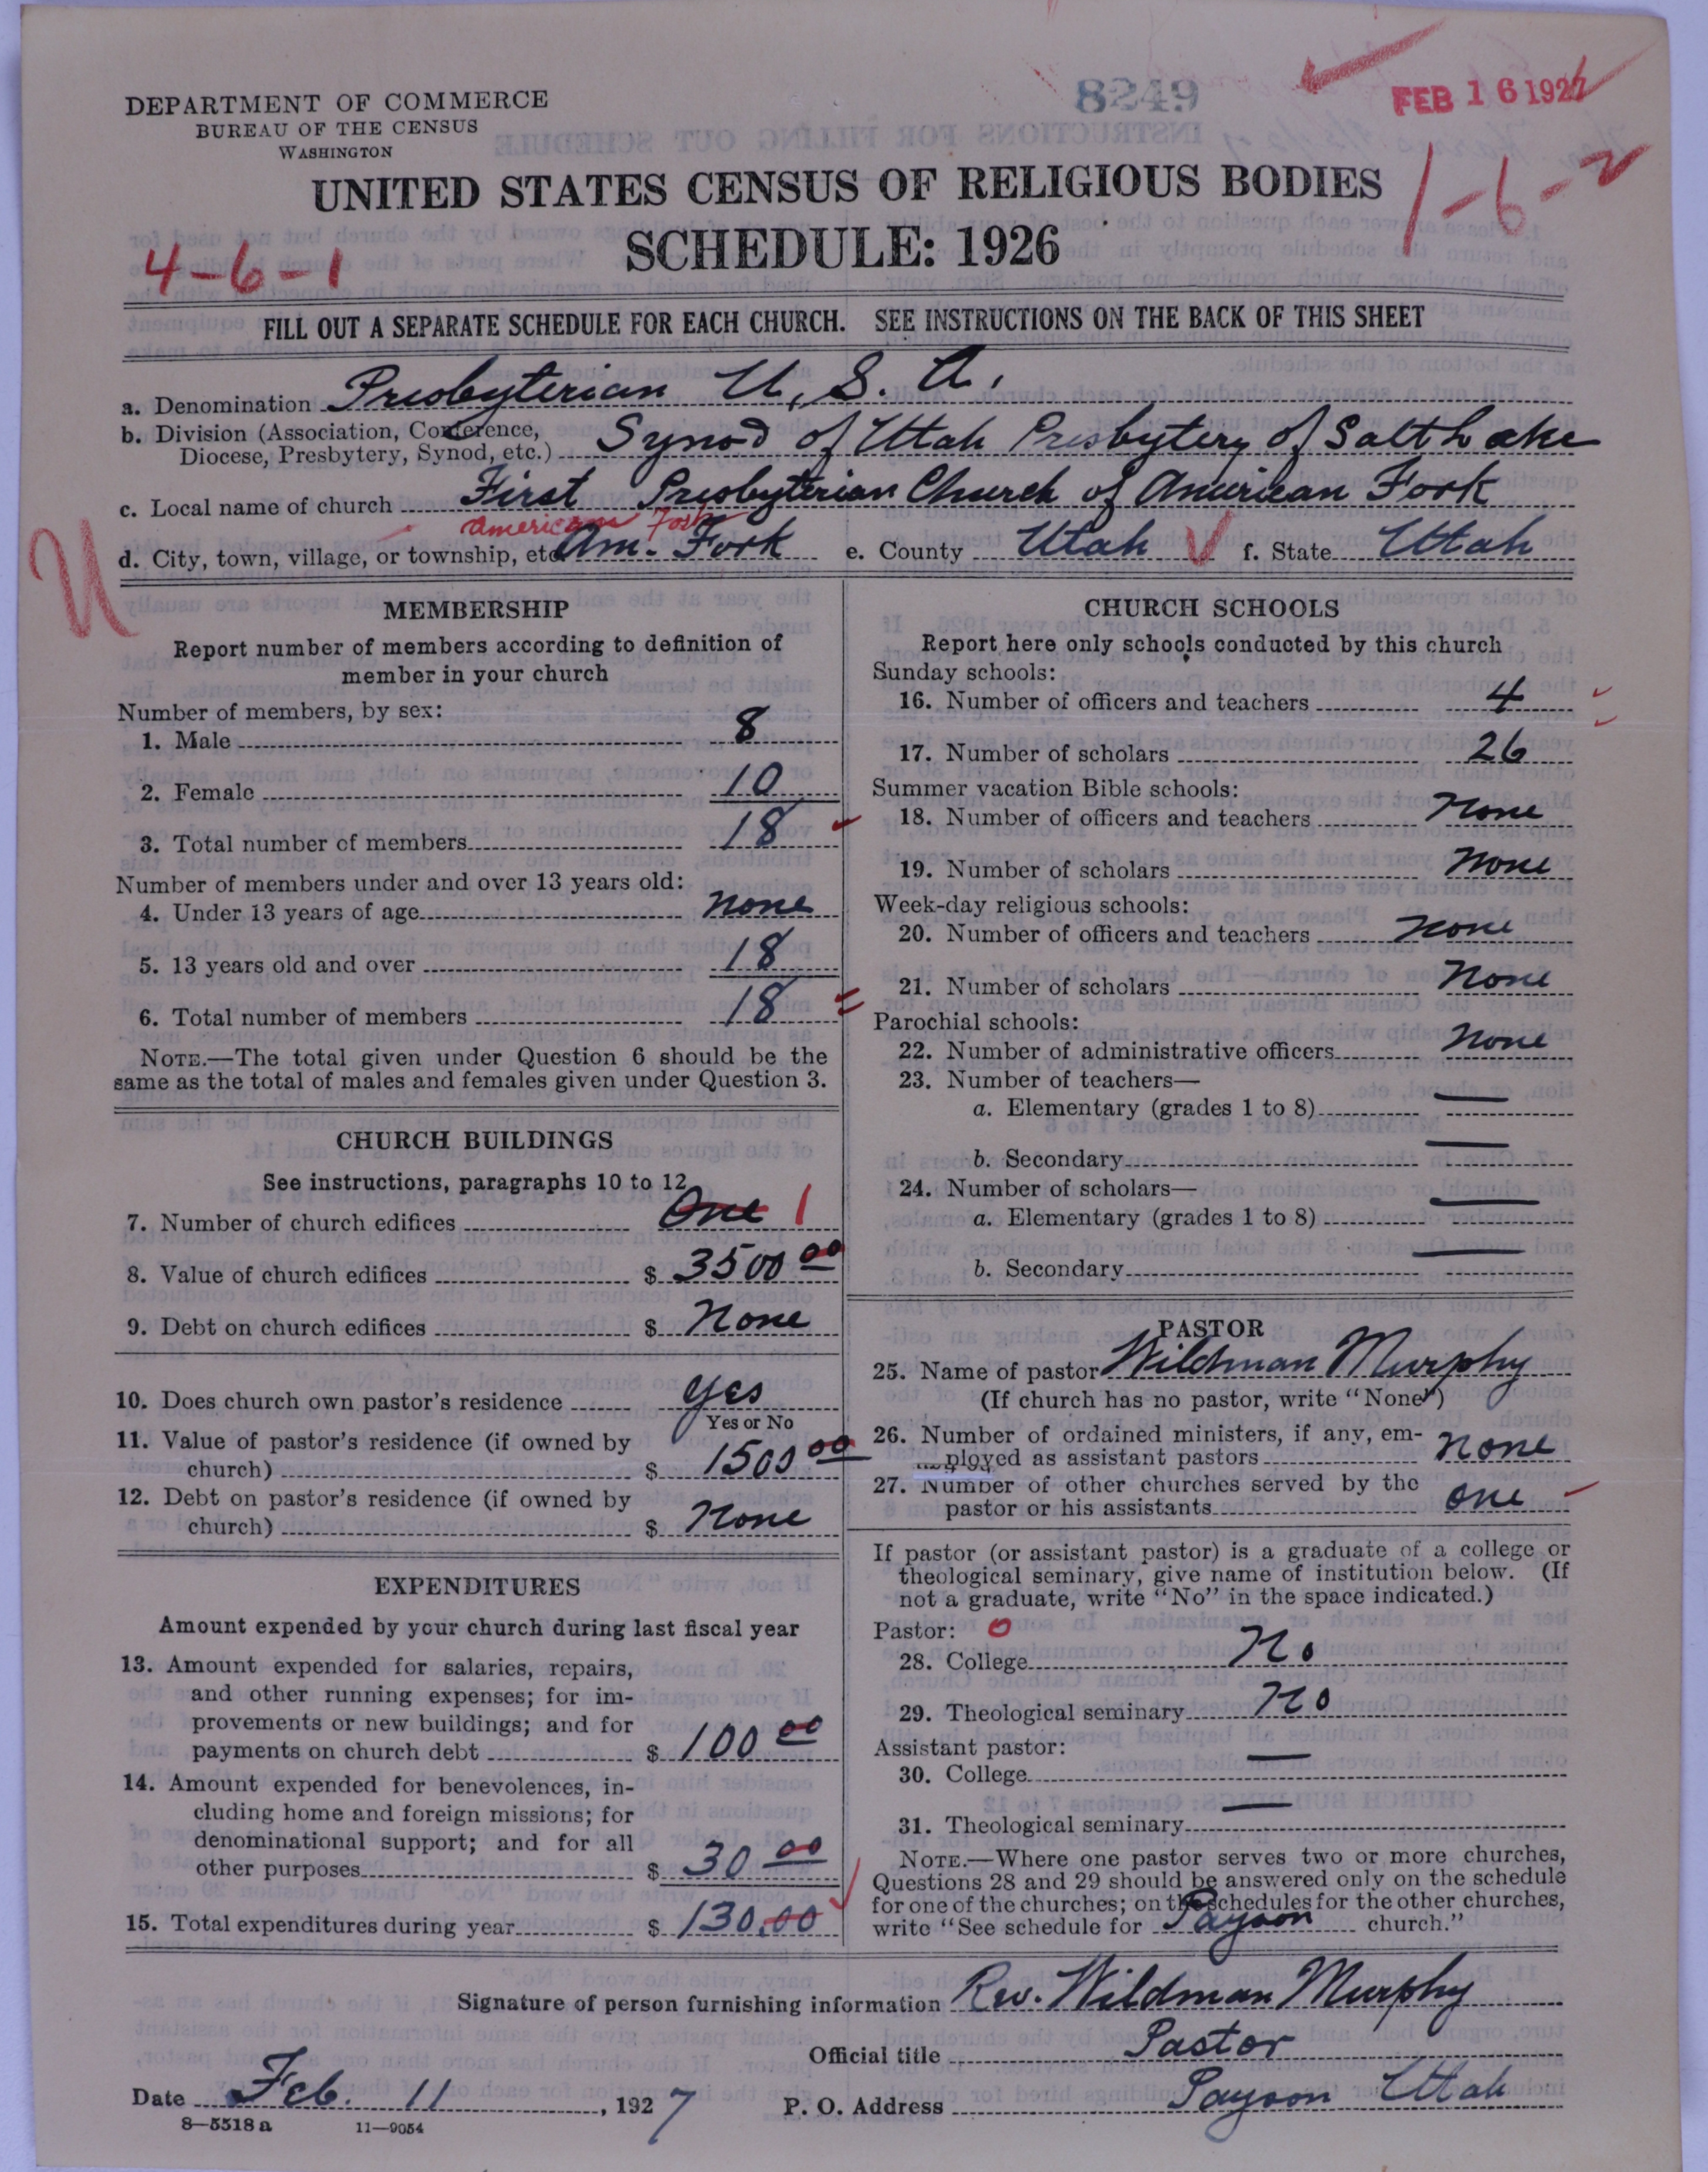 8249
FEB 16 1927
DEPARTMENT OF COMMERCE
BUREAU OF THE CENSUS
WASHINGTON
UNITED STATES CENSUS OF RELIGIOUS BODIES
1-6-2
SCHEDULE: 1926
4-6-1
FILL OUT A SEPARATE SCHEDULE FOR EACH CHURCH. SEE INSTRUCTIONS ON THE BACK OF THIS SHEET
a. Denomination Presbyterian U.S.A.
b. Division (Association, Conference, Diocese, Presbytery, Synod, etc.) Synod of Utah Presbytery of Salt Lake
c. Local name of church First Presbyterian Church of American Fork
American Fork
d. City, town, village, or township, etc. Am. Fork e. County Utah f. State Utah
U
MEMBERSHIP
Report number of members according to definition of
member in your church
Number of members, by sex:
1. Male 8
2. Female 10
3. Total number of members 18
Number of members under and over 13 years old:
4. Under 13 years of age none
5. 13 years old and over 18
6. Total number of members 18
NOTE.—The total given under Question 6 should be the
same as the total of males and females given under Question 3.
CHURCH BUILDINGS
See instructions, paragraphs 10 to 12
7. Number of church edifices One 1
8. Value of church edifices $ 3500 00
9. Debt on church edifices $ None
10. Does church own pastor's residence yes
Yes or No
11. Value of pastor's residence (if owned by
church) $ 1500 00
12. Debt on pastor's residence (if owned by
church) $ None
EXPENDITURES
Amount expended by your church during last fiscal year
13. Amount expended for salaries, repairs,
and other running expenses; for im-
provements or new buildings; and for
payments on church debt $ 100 00
14. Amount expended for benevolences, in-
cluding home and foreign missions; for
denominational support; and for all
other purposes $ 30 00
15. Total expenditures during year $ 130.00
CHURCH SCHOOLS
Report here only schools conducted by this church
Sunday schools:
16. Number of officers and teachers 4
17. Number of scholars 26
Summer vacation Bible schools:
18. Number of officers and teachers None
19. Number of scholars None
Week-day religious schools:
20. Number of officers and teachers None
21. Number of scholars None
Parochial schools:
22. Number of administrative officers None
23. Number of teachers—
a. Elementary (grades 1 to 8) —
b. Secondary —
24. Number of scholars—
a. Elementary (grades 1 to 8) —
b. Secondary —
PASTOR
25. Name of pastor Wildman Murphy
(If church has no pastor, write "None")
26. Number of ordained ministers, if any, em-
ployed as assistant pastors none
27. Number of other churches served by the
pastor or his assistants one
If pastor (or assistant pastor) is a graduate of a college or
theological seminary, give name of institution below. (If
not a graduate, write "No" in the space indicated.)
Pastor: 0
28. College No
29. Theological seminary No
Assistant pastor:
30. College —
31. Theological seminary —
NOTE.—Where one pastor serves two or more churches,
Questions 28 and 29 should be answered only on the schedule
for one of the churches; on the schedules for the other churches,
write "See schedule for Payson church."
Signature of person furnishing information Rev. Wildman Murphy
Official title Pastor
Date Feb. 11, 1927 P. O. Address Payson Utah
8—5518 a 11—9054